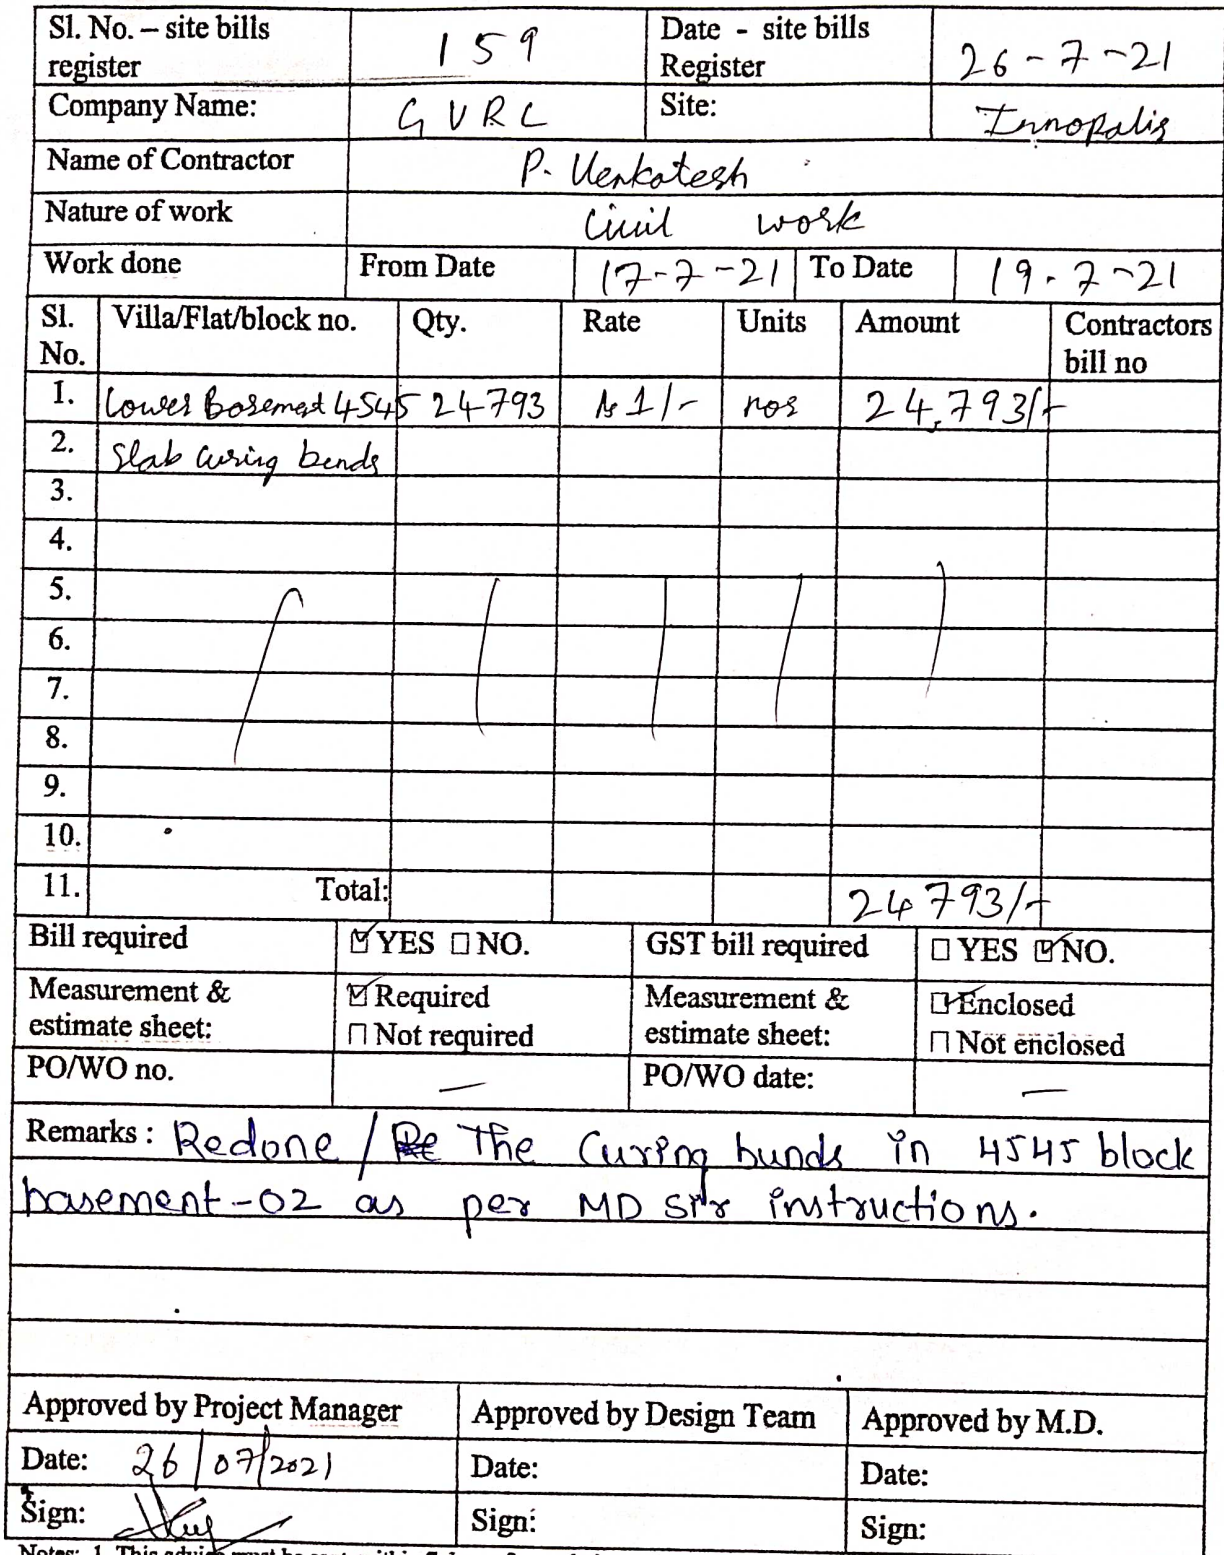 Sl. No. – site bills register 159 Date - site bills Register 26-7-21
Company Name: GVRC Site: Innopolis
Name of Contractor P. Venkatesh
Nature of work Civil work
Work done From Date 17-7-21 To Date 19-7-21
Sl. No. Villa/Flat/block no. Qty. Rate Units Amount Contractors bill no
1. Lower Basement 4545 24793 Rs 1/- nos 24,793/-
2. Slab curing bends
3.
4.
5.
6.
7.
8.
9.
10.
11. Total: 24793/-
Bill required ☑ YES ☐ NO. GST bill required ☐ YES ☑ NO.
Measurement & estimate sheet: ☑ Required ☐ Not required Measurement & estimate sheet: ☑ Enclosed ☐ Not enclosed
PO/WO no. — PO/WO date: —
Remarks : Redone / The Curing bunds in 4545 block
basement-02 as per MD Sir instructions.
Approved by Project Manager Approved by Design Team Approved by M.D.
Date: 26/07/2021 Date: Date:
Sign: Sign: Sign: